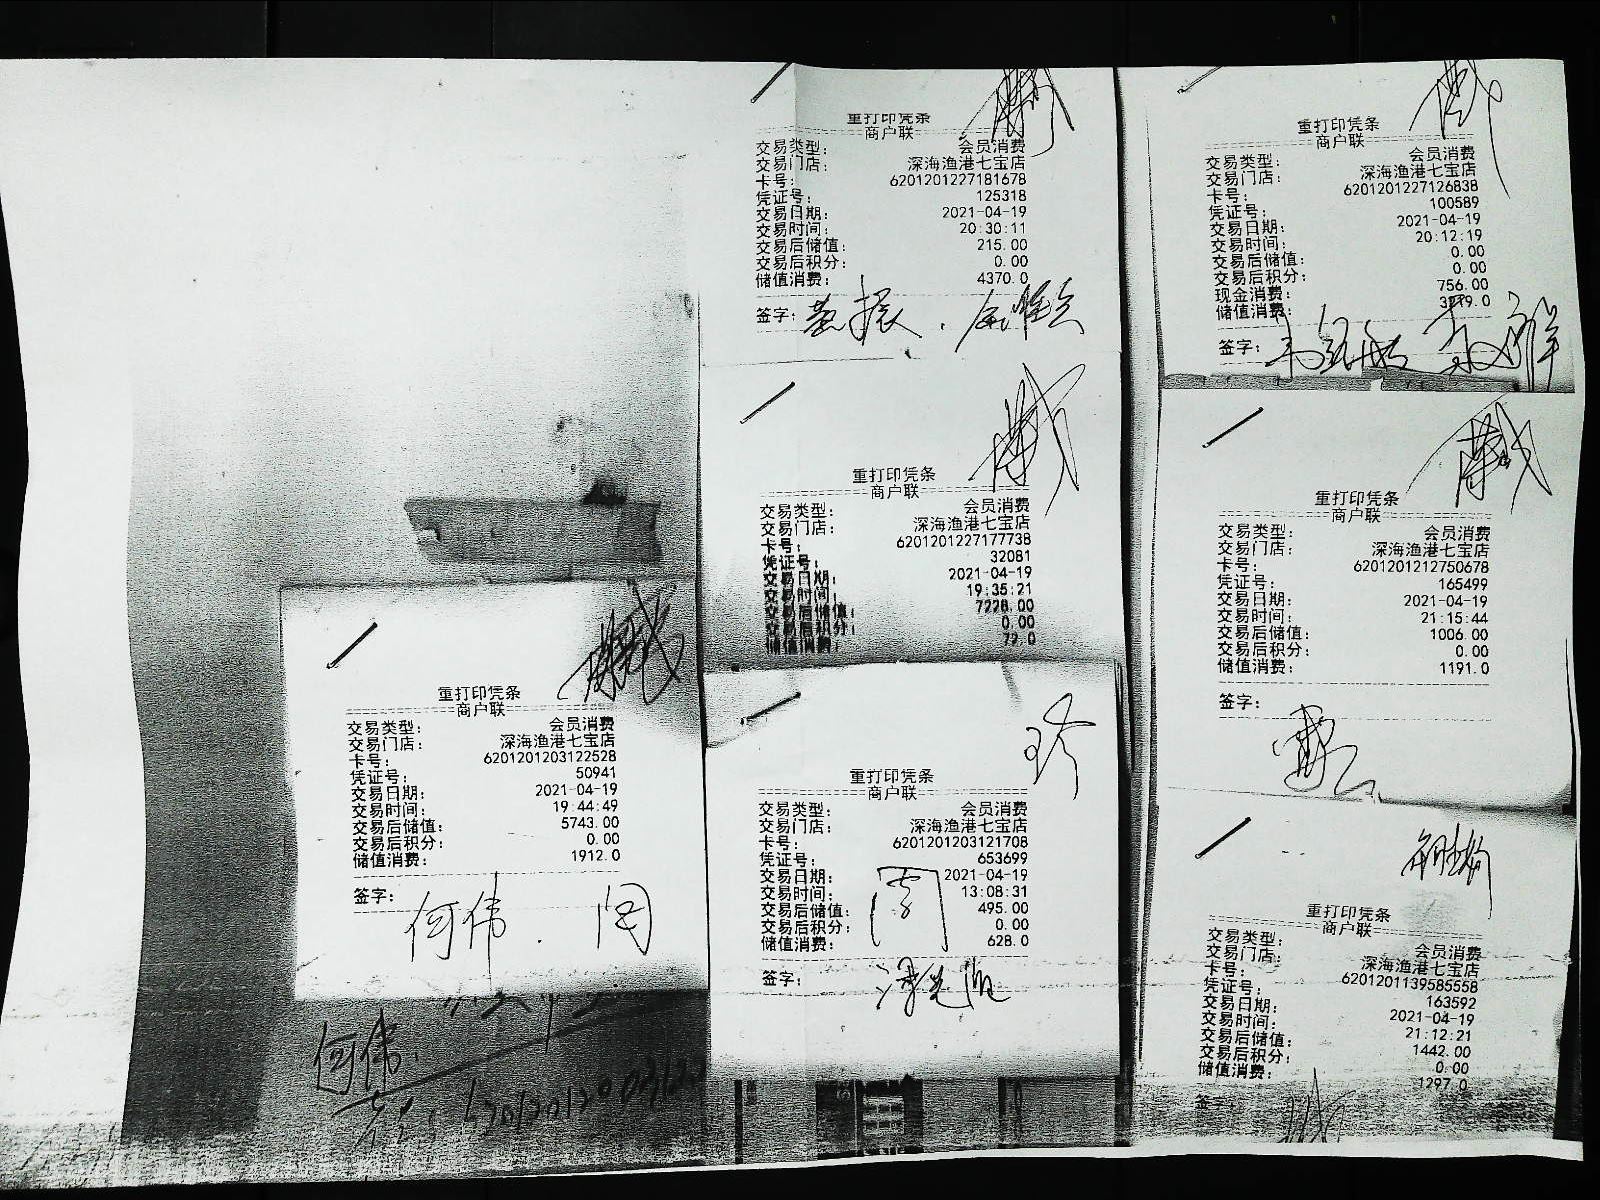 重打印凭条
商户联
交易类型： 会员消费
交易门店： 深海渔港七宝店
卡号： 6201201203122528
凭证号： 50941
交易日期： 2021-04-19
交易时间： 19:44:49
交易后储值： 5743.00
交易后积分： 0.00
储值消费： 1912.0
签字：
何伟
何伟
重打印凭条
商户联
交易类型： 会员消费
交易门店： 深海渔港七宝店
卡号： 6201201227181678
凭证号： 125318
交易日期： 2021-04-19
交易时间： 20:30:11
交易后储值： 215.00
交易后积分： 0.00
储值消费： 4370.0
签字：
重打印凭条
商户联
交易类型： 会员消费
交易门店： 深海渔港七宝店
卡号： 6201201227177738
凭证号： 32081
交易日期： 2021-04-19
交易时间： 19:35:21
交易后储值： 7228.00
交易后积分： 0.00
储值消费： 79.0
重打印凭条
商户联
交易类型： 会员消费
交易门店： 深海渔港七宝店
卡号： 6201201203121708
凭证号： 653699
交易日期： 2021-04-19
交易时间： 13:08:31
交易后储值： 495.00
交易后积分： 0.00
储值消费： 628.0
签字：
重打印凭条
商户联
交易类型： 会员消费
交易门店： 深海渔港七宝店
卡号： 6201201227126838
凭证号： 100589
交易日期： 2021-04-19
交易时间： 20:12:19
交易后储值： 0.00
交易后积分： 0.00
现金消费： 756.00
储值消费： 3219.0
签字：
重打印凭条
商户联
交易类型： 会员消费
交易门店： 深海渔港七宝店
卡号： 6201201212750678
凭证号： 165499
交易日期： 2021-04-19
交易时间： 21:15:44
交易后储值： 1006.00
交易后积分： 0.00
储值消费： 1191.0
签字：
重打印凭条
商户联
交易类型： 会员消费
交易门店： 深海渔港七宝店
卡号： 6201201139585558
凭证号： 163592
交易日期： 2021-04-19
交易时间： 21:12:21
交易后储值： 1442.00
交易后积分： 0.00
储值消费： 1297.0
签字：